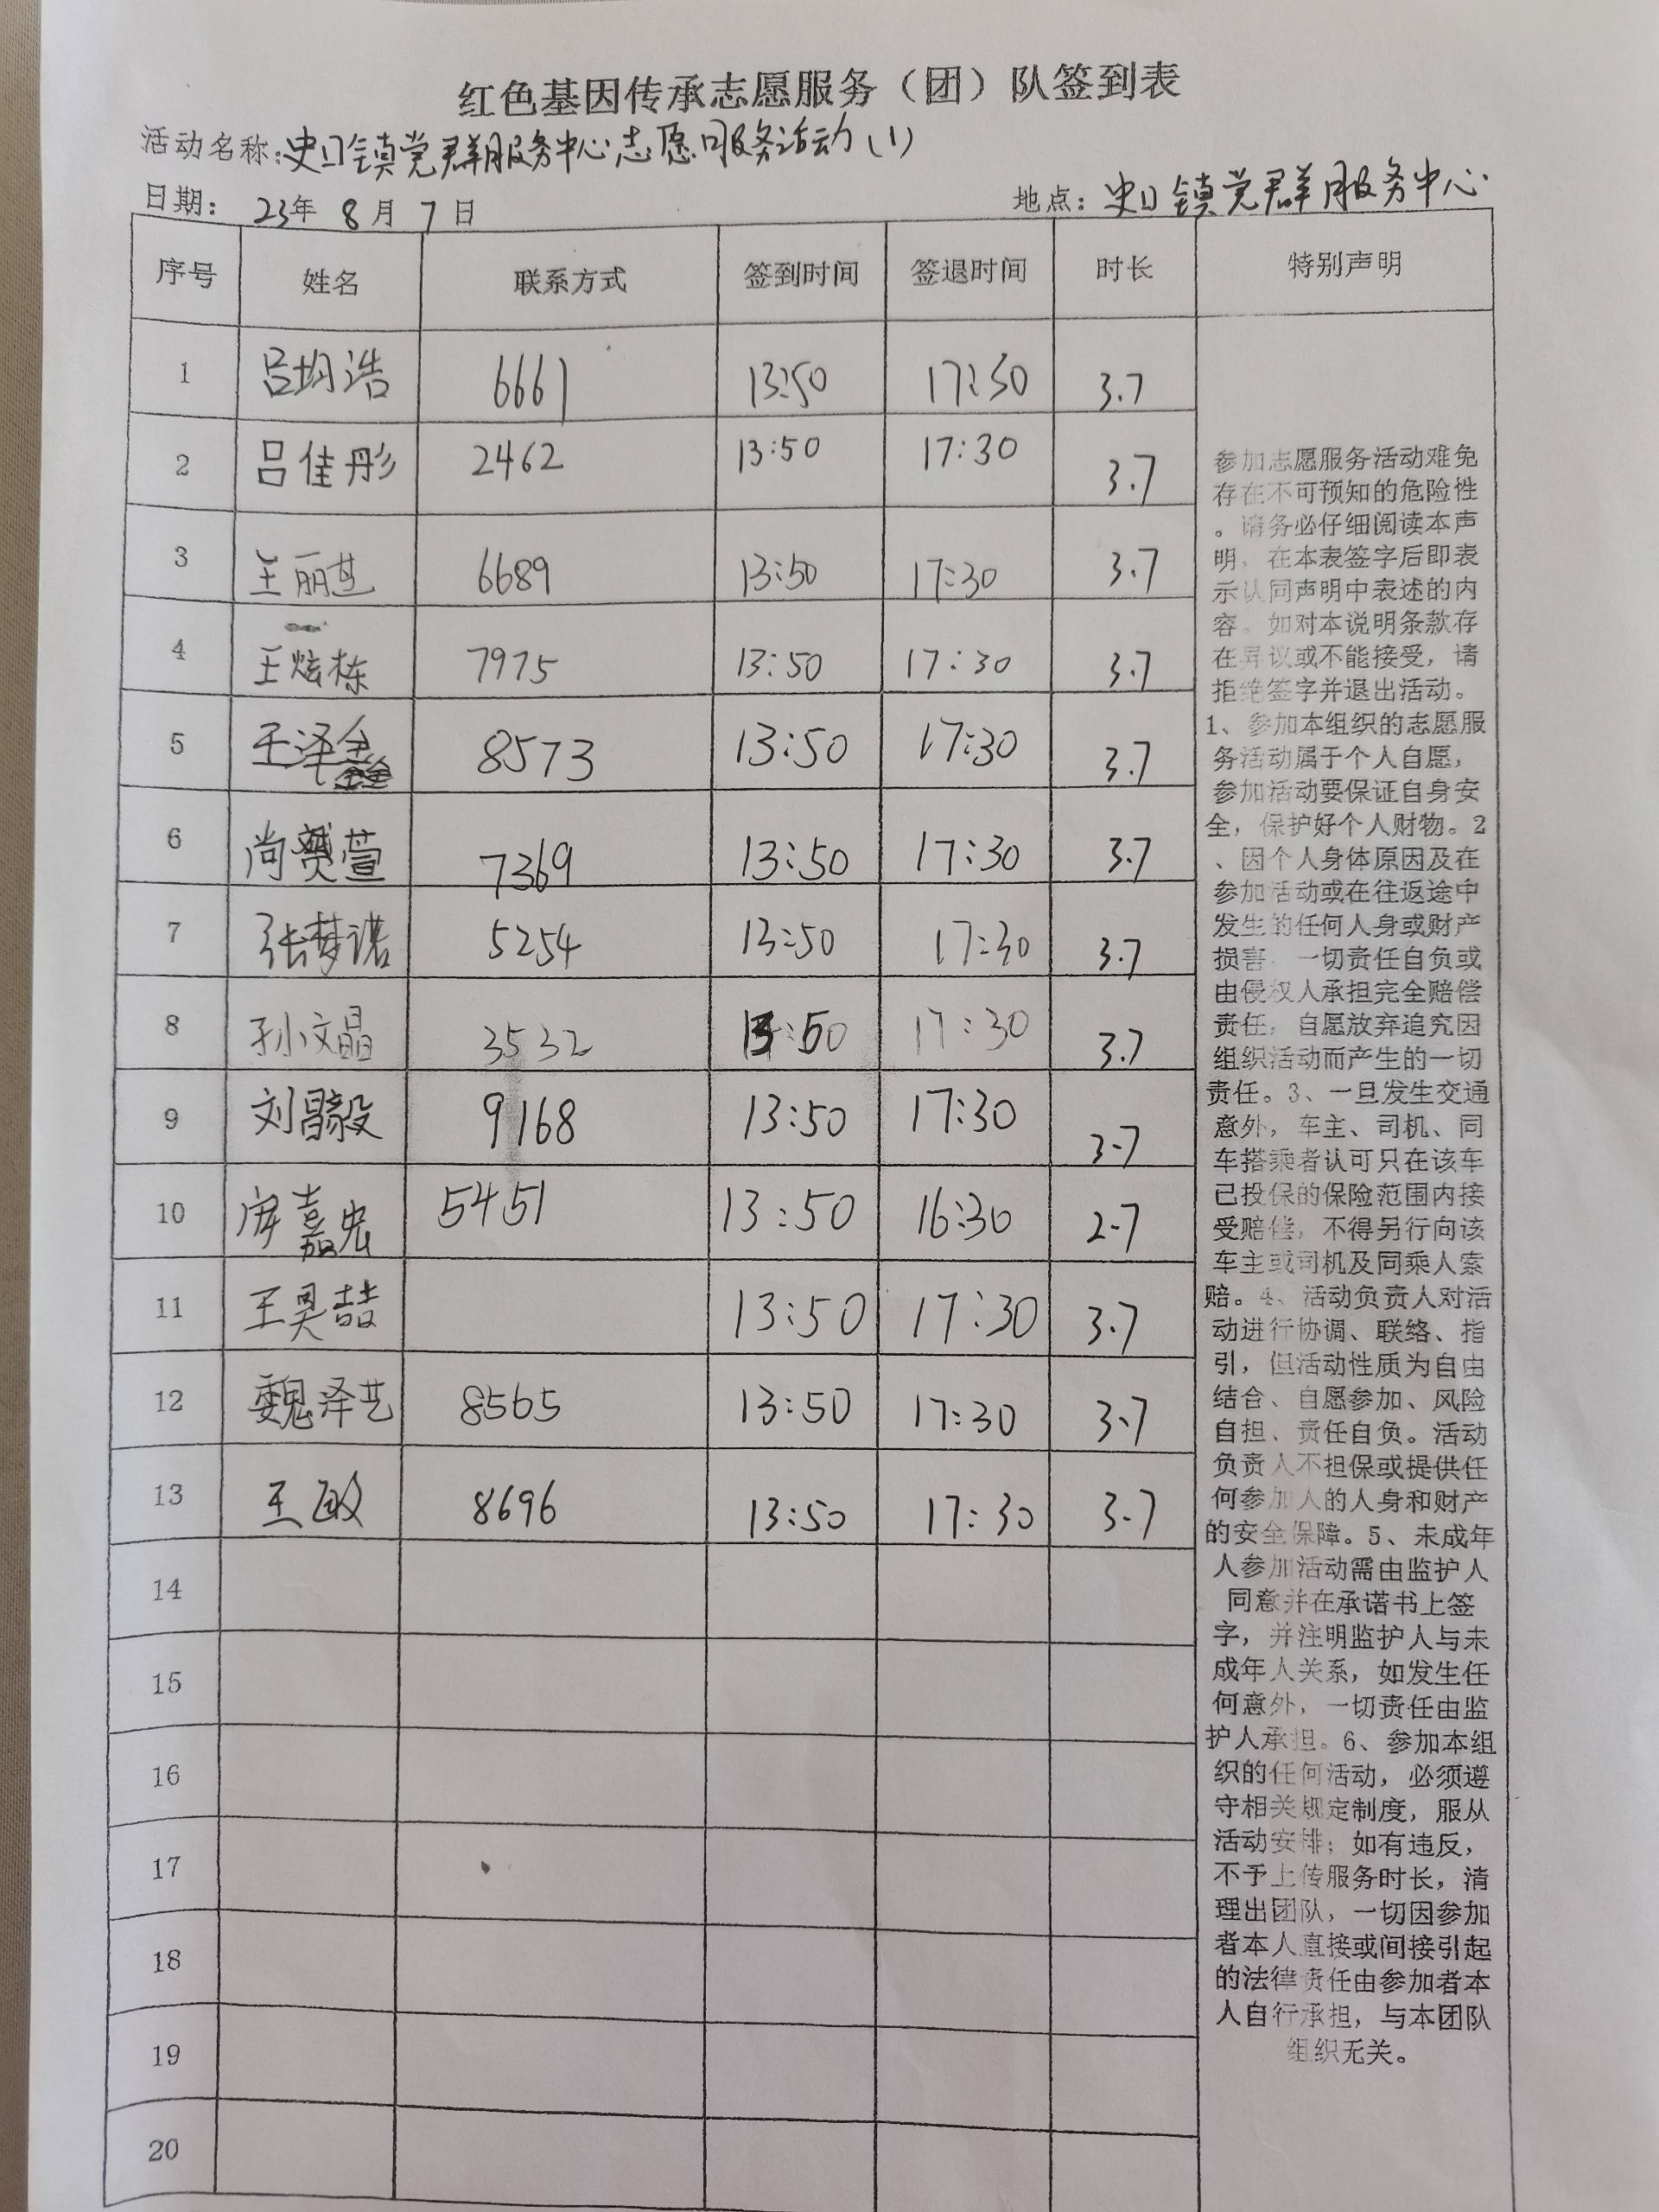 红色基因传承志愿服务（团）队签到表
活动名称:史口镇党群服务中心志愿服务活动(1)
日期： 23年 8 月 7 日 地点：史口镇党群服务中心
序号 姓名 联系方式 签到时间 签退时间 时长 特别声明
1 吕均浩 6661 13:50 17:30 3.7
2 吕佳彤 2462 13:50 17:30 3.7
3 王丽芝 6689 13:50 17:30 3.7
4 王炫栋 7975 13:50 17:30 3.7
5 王泽 8573 13:50 17:30 3.7
6 尚 萱 7369 13:50 17:30 3.7
7 张梦诺 5254 13:50 17:30 3.7
8 孙文晶 3532 13:50 17:30 3.7
9 刘昌毅 9168 13:50 17:30 3.7
10 嘉宏 5451 13:50 16:30 2.7
11 王昊喆 13:50 17:30 3.7
12 魏泽艺 8565 13:50 17:30 3.7
13 王敏 8696 13:50 17:30 3.7
14
15
16
17
18
19
20
参加志愿服务活动难免
存在不可预知的危险性
。请务必仔细阅读本声
明，在本表签字后即表
示认同声明中表述的内
容。如对本说明条款存
在异议或不能接受，请
拒绝签字并退出活动。
1、参加本组织的志愿服
务活动属于个人自愿，
参加活动要保证自身安
全，保护好个人财物。2
、因个人身体原因及在
参加活动或在往返途中
发生的任何人身或财产
损害，一切责任自负或
由侵权人承担完全赔偿
责任，自愿放弃追究因
组织活动而产生的一切
责任。3、一旦发生交通
意外，车主、司机、同
车搭乘者认可只在该车
已投保的保险范围内接
受赔偿，不得另行向该
车主或司机及同乘人索
赔。4、活动负责人对活
动进行协调、联络、指
引，但活动性质为自由
结合、自愿参加、风险
自担、责任自负。活动
负责人不担保或提供任
何参加人的人身和财产
的安全保障。5、未成年
人参加活动需由监护人
同意并在承诺书上签
字，并注明监护人与未
成年人关系，如发生任
何意外，一切责任由监
护人承担。6、参加本组
织的任何活动，必须遵
守相关规定制度，服从
活动安排；如有违反，
不予上传服务时长，清
理出团队，一切因参加
者本人直接或间接引起
的法律责任由参加者本
人自行承担，与本团队
组织无关。